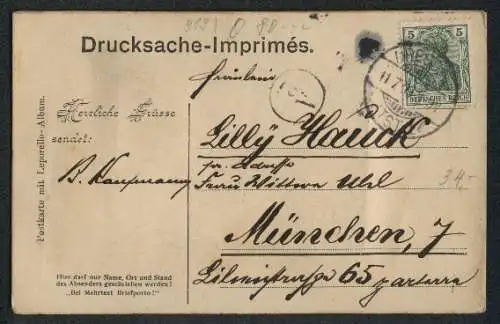 Drucksache-Imprimés.
Fräulein
Herzliche Grüsse
sendet:
B. Kaufmann
Lilly Hauck
pr. Adresse
Frau Wittwe Uhl
München, 7
65 parterre
34,-
Postkarte mit Leporello-Album.
Hier darf nur Name, Ort und Stand
des Absenders geschrieben werden!
"Bei Mehrtext Briefporto!"
5
DEUTSCHES REICH